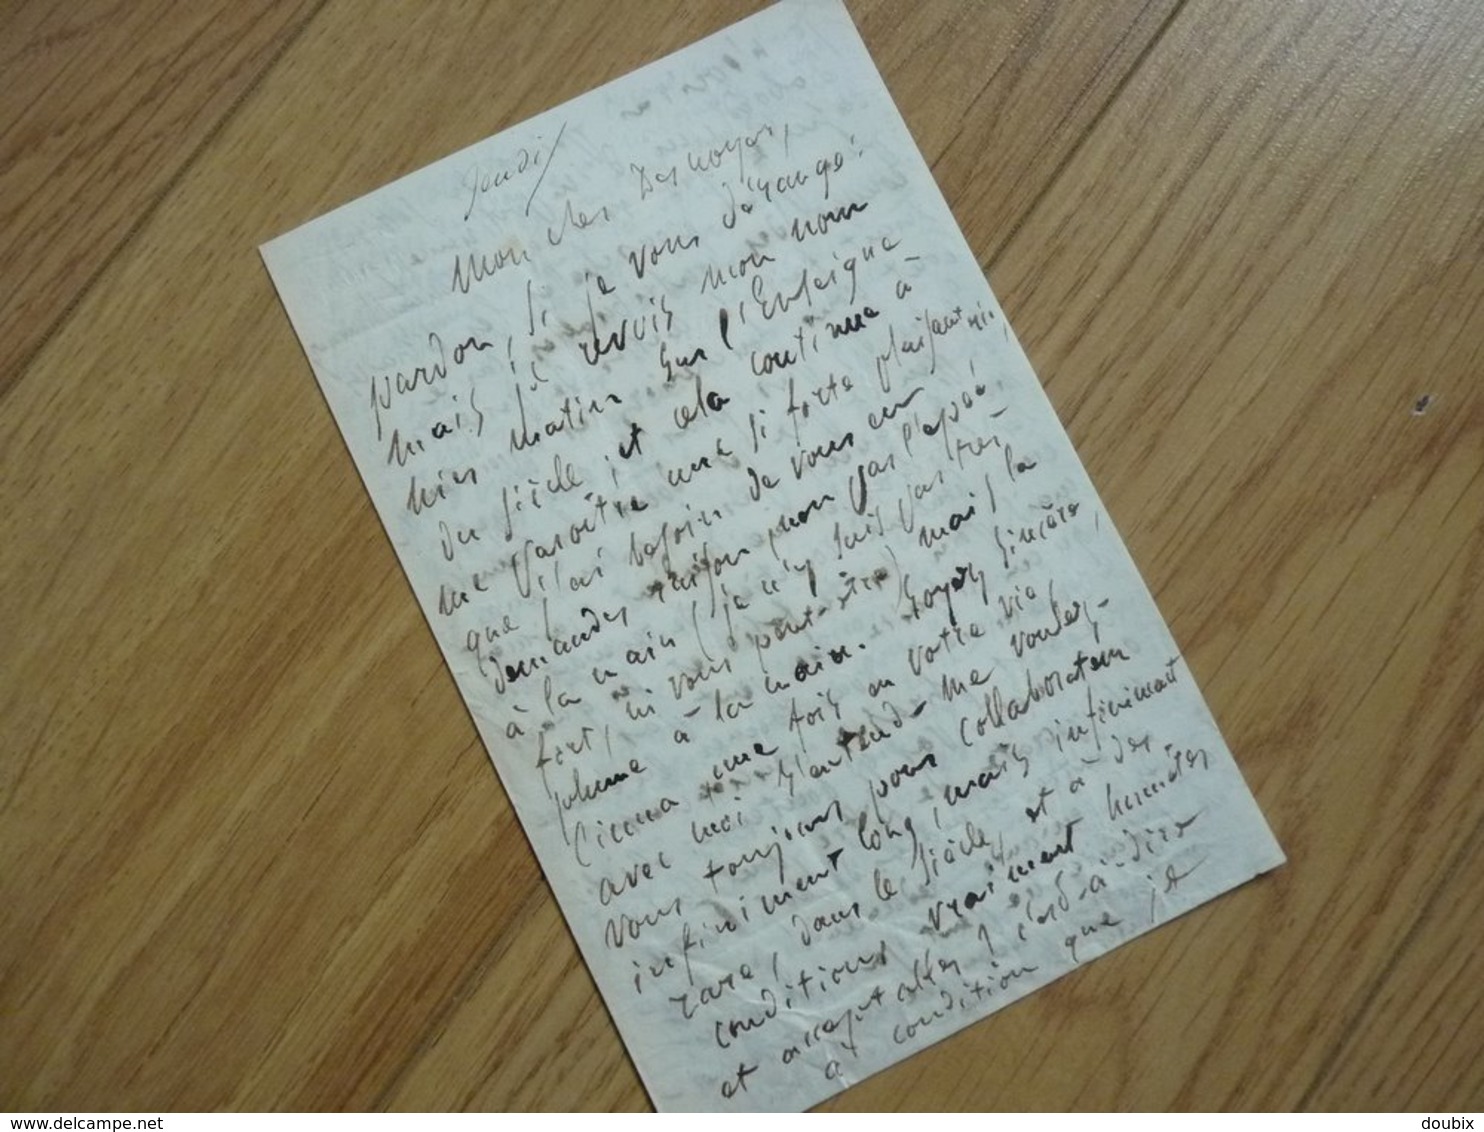 Jeudi
Mon cher Desnoyers,
pardon, si je vous dérange:
mais je revois mon nom
hier matin sur l'Enseigne
du Siècle; et cela continue à
me paroître une si forte plaisanterie,
que j'ai besoin de vous en
demander raison, non pas l'épée
à la main (je n'y suis pas très-
fort, ni vous peut-être) mais la
plume à la main. Soyez sincère,
une fois en votre vie,
avec moi s'entend- me voulez-
vous toujours pour collaborateur
infiniment long, mais infiniment
rare, dans le Siècle, et à des
conditions vraiment honnêtes
et acceptables? c'est-à-dire
à condition que je
www.delcampe.net
doubix